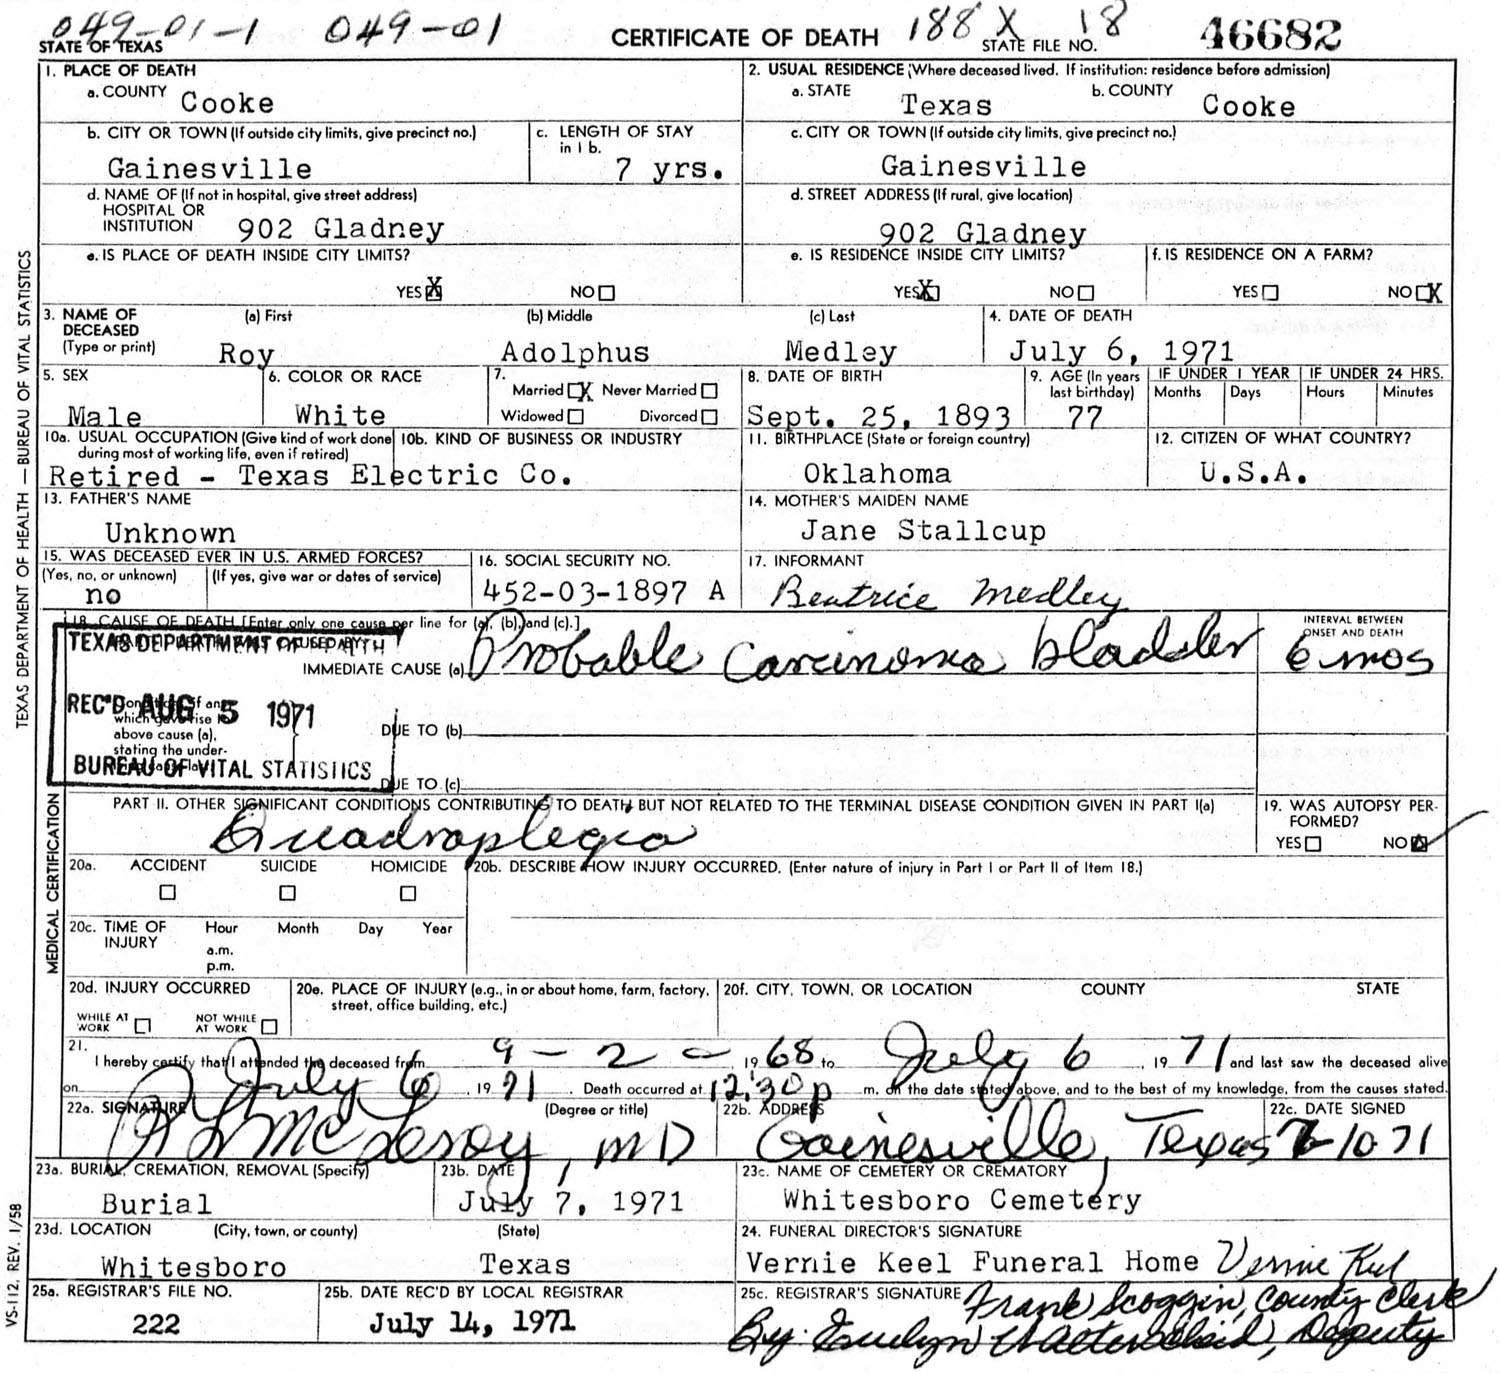 049-01-1 049-01 188 X 18
STATE OF TEXAS CERTIFICATE OF DEATH STATE FILE NO. 46682
1. PLACE OF DEATH
a. COUNTY Cooke
2. USUAL RESIDENCE (Where deceased lived. If institution: residence before admission)
a. STATE Texas b. COUNTY Cooke
b. CITY OR TOWN (If outside city limits, give precinct no.) Gainesville
c. LENGTH OF STAY in 1 b. 7 yrs.
c. CITY OR TOWN (If outside city limits, give precinct no.) Gainesville
d. NAME OF (If not in hospital, give street address)
HOSPITAL OR
INSTITUTION 902 Gladney
d. STREET ADDRESS (If rural, give location)
902 Gladney
e. IS PLACE OF DEATH INSIDE CITY LIMITS?
YES X NO
e. IS RESIDENCE INSIDE CITY LIMITS?
YES X NO
f. IS RESIDENCE ON A FARM?
YES NO X
3. NAME OF DECEASED (Type or print)
(a) First Roy (b) Middle Adolphus (c) Last Medley
4. DATE OF DEATH July 6, 1971
5. SEX Male
6. COLOR OR RACE White
7. Married X Never Married
Widowed Divorced
8. DATE OF BIRTH Sept. 25, 1893
9. AGE (In years last birthday) 77
IF UNDER 1 YEAR Months Days
IF UNDER 24 HRS. Hours Minutes
10a. USUAL OCCUPATION (Give kind of work done during most of working life, even if retired)
10b. KIND OF BUSINESS OR INDUSTRY
Retired - Texas Electric Co.
11. BIRTHPLACE (State or foreign country) Oklahoma
12. CITIZEN OF WHAT COUNTRY? U.S.A.
13. FATHER'S NAME Unknown
14. MOTHER'S MAIDEN NAME Jane Stallcup
15. WAS DECEASED EVER IN U.S. ARMED FORCES?
(Yes, no, or unknown) no (If yes, give war or dates of service)
16. SOCIAL SECURITY NO. 452-03-1897 A
17. INFORMANT Beatrice Medley
18. CAUSE OF DEATH [Enter only one cause per line for (a), (b), and (c).]
IMMEDIATE CAUSE (a) Probable Carcinoma bladder
INTERVAL BETWEEN ONSET AND DEATH 6 mos
TEXAS DEPARTMENT OF HEALTH
REC'D AUG 5 1971
BUREAU OF VITAL STATISTICS
Conditions, if any,
which gave rise to
above cause (a),
stating the under-
lying cause last.
DUE TO (b)
DUE TO (c)
PART II. OTHER SIGNIFICANT CONDITIONS CONTRIBUTING TO DEATH BUT NOT RELATED TO THE TERMINAL DISEASE CONDITION GIVEN IN PART I(a)
Quadraplegia
19. WAS AUTOPSY PERFORMED?
YES NO
20a. ACCIDENT SUICIDE HOMICIDE
20b. DESCRIBE HOW INJURY OCCURRED. (Enter nature of injury in Part I or Part II of Item 18.)
20c. TIME OF INJURY Hour Month Day Year
a.m.
p.m.
20d. INJURY OCCURRED
WHILE AT WORK NOT WHILE AT WORK
20e. PLACE OF INJURY (e.g., in or about home, farm, factory, street, office building, etc.)
20f. CITY, TOWN, OR LOCATION COUNTY STATE
21. I hereby certify that I attended the deceased from 9-2- 1968 to July 6, 1971 and last saw the deceased alive
on July 6, 1971. Death occurred at 12:30 p m. on the date stated above, and to the best of my knowledge, from the causes stated.
22a. SIGNATURE (Degree or title) R L McLeroy, MD
22b. ADDRESS Gainesville, Texas
22c. DATE SIGNED 7-10-71
23a. BURIAL, CREMATION, REMOVAL (Specify) Burial
23b. DATE July 7, 1971
23c. NAME OF CEMETERY OR CREMATORY Whitesboro Cemetery
23d. LOCATION (City, town, or county) (State)
Whitesboro Texas
24. FUNERAL DIRECTOR'S SIGNATURE
Vernie Keel Funeral Home Vernie Keel
25a. REGISTRAR'S FILE NO. 222
25b. DATE REC'D BY LOCAL REGISTRAR July 14, 1971
25c. REGISTRAR'S SIGNATURE Frank Scoggin, County Clerk
By: Evelyn Walterscheid, Deputy
TEXAS DEPARTMENT OF HEALTH — BUREAU OF VITAL STATISTICS
MEDICAL CERTIFICATION
VS-112, REV. 1/58